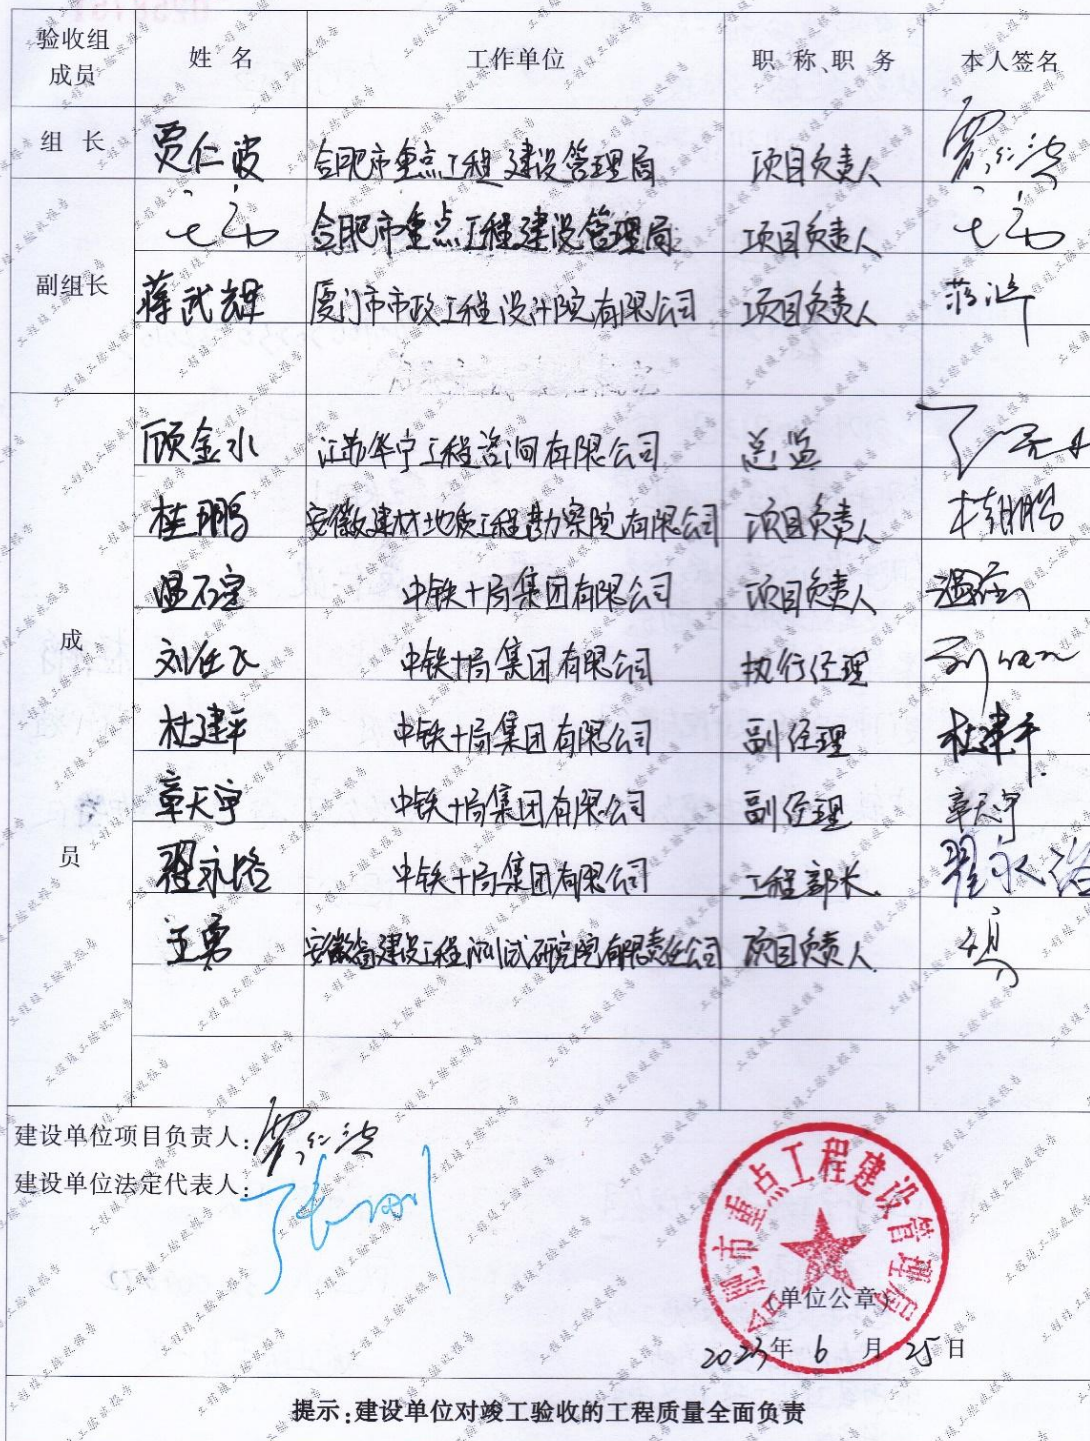 验收组成员 姓 名 工作单位 职 称、职 务 本人签名
组 长 贾仁波 合肥市重点工程建设管理局 项目负责人 贾仁波
合肥市重点工程建设管理局 项目负责人
副组长 蒋武雄 厦门市市政工程设计院有限公司 项目负责人
顾金水 江苏华宁工程咨询有限公司 总监
杜鹏 安徽建材地质工程勘察院有限公司 项目负责人
温石宝 中铁十局集团有限公司 项目负责人
成 刘任飞 中铁十局集团有限公司 执行经理
杜建平 中铁十局集团有限公司 副经理 杜建平
章天宇 中铁十局集团有限公司 副经理 章天宇
员 翟永培 中铁十局集团有限公司 工程部长
王勇 安徽省建设工程测试研究院有限责任公司 项目负责人
建设单位项目负责人：贾仁波
建设单位法定代表人：
合肥市重点工程建设管理局
（单位公章）
2023年 6 月 25日
提示：建设单位对竣工验收的工程质量全面负责
工程竣工验收报告